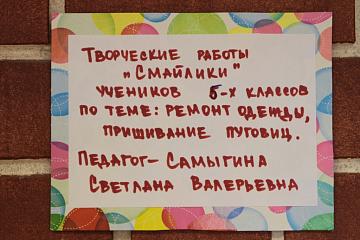 Творческие работы
„Смайлики"
учеников 5-х классов
по теме: ремонт одежды,
пришивание пуговиц.
Педагог- Самыгина
Светлана Валерьевна